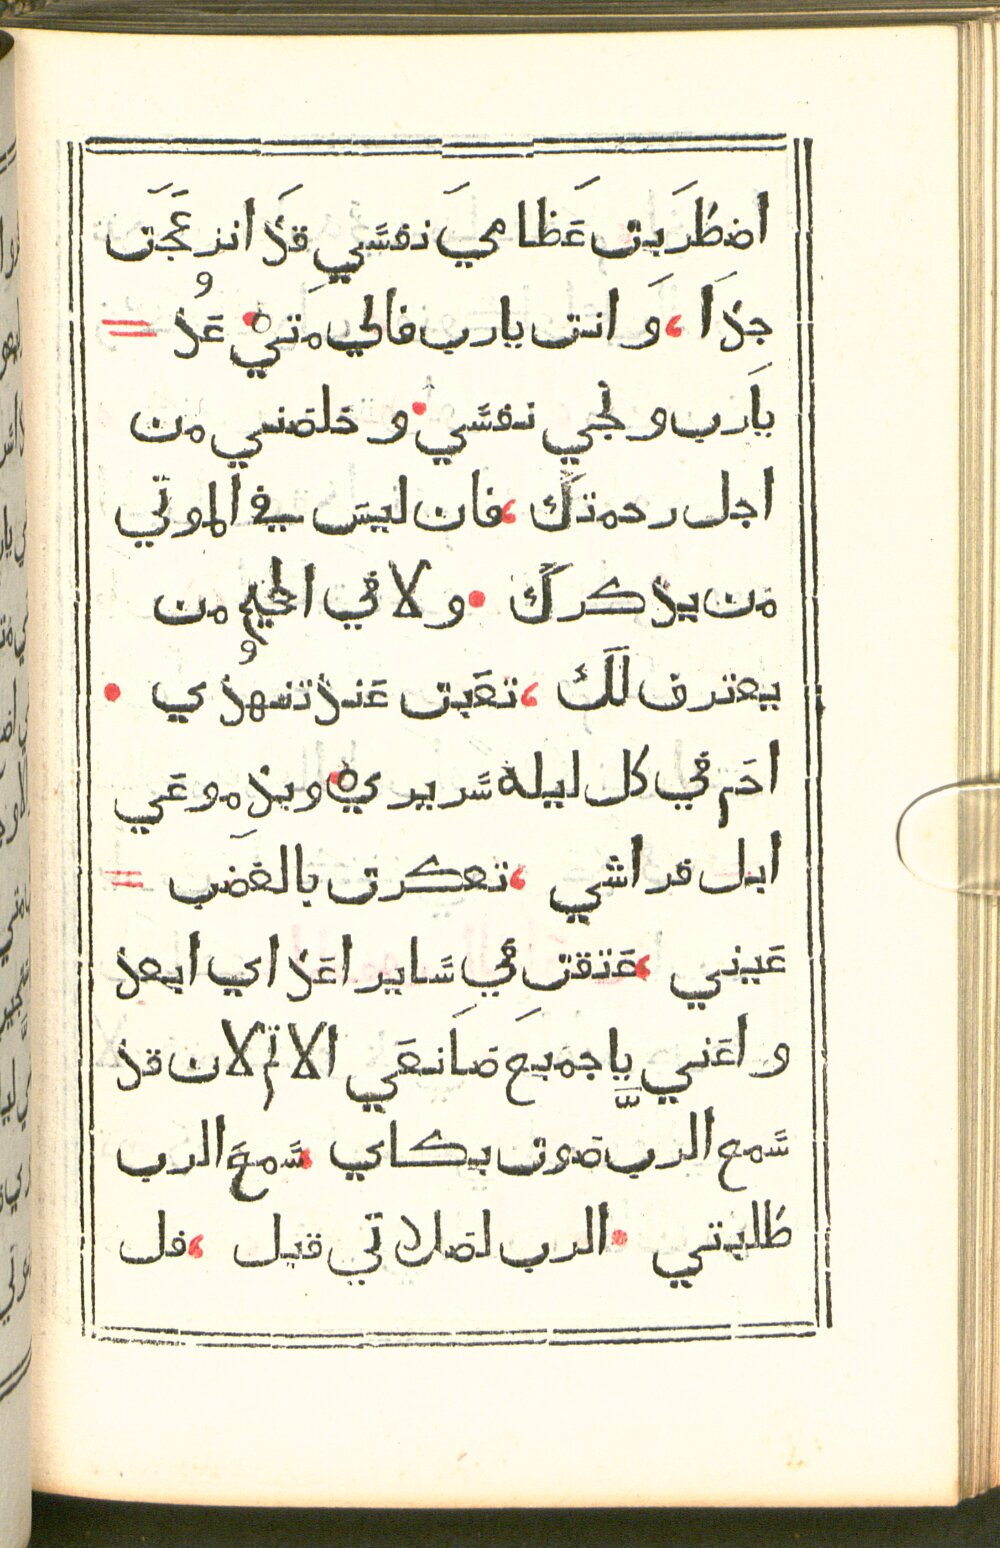 اضطربت عظامي نفسي قد انزعجت
جدا ، وانت يارب فالي متي • عد =
يارب ونجي نفسي • وخلصني من
اجل رحمتك ، فان ليس في الموتي
من يذكرك • ولا في الجحيم من
يعترف لك ، تعبت عند تنهدي •
احم في كل ليله سريري • وبدموعي
ابل فراشي ، تعكرت بالغضب =
عيني ، عتقت في ساير اعداي ابعدو
واعني ياجميع صانعي الاثم لان قد
سمع الرب صوت بكاي ، سمع الرب
طلبتي • الرب لصلاتي قبل ، فل